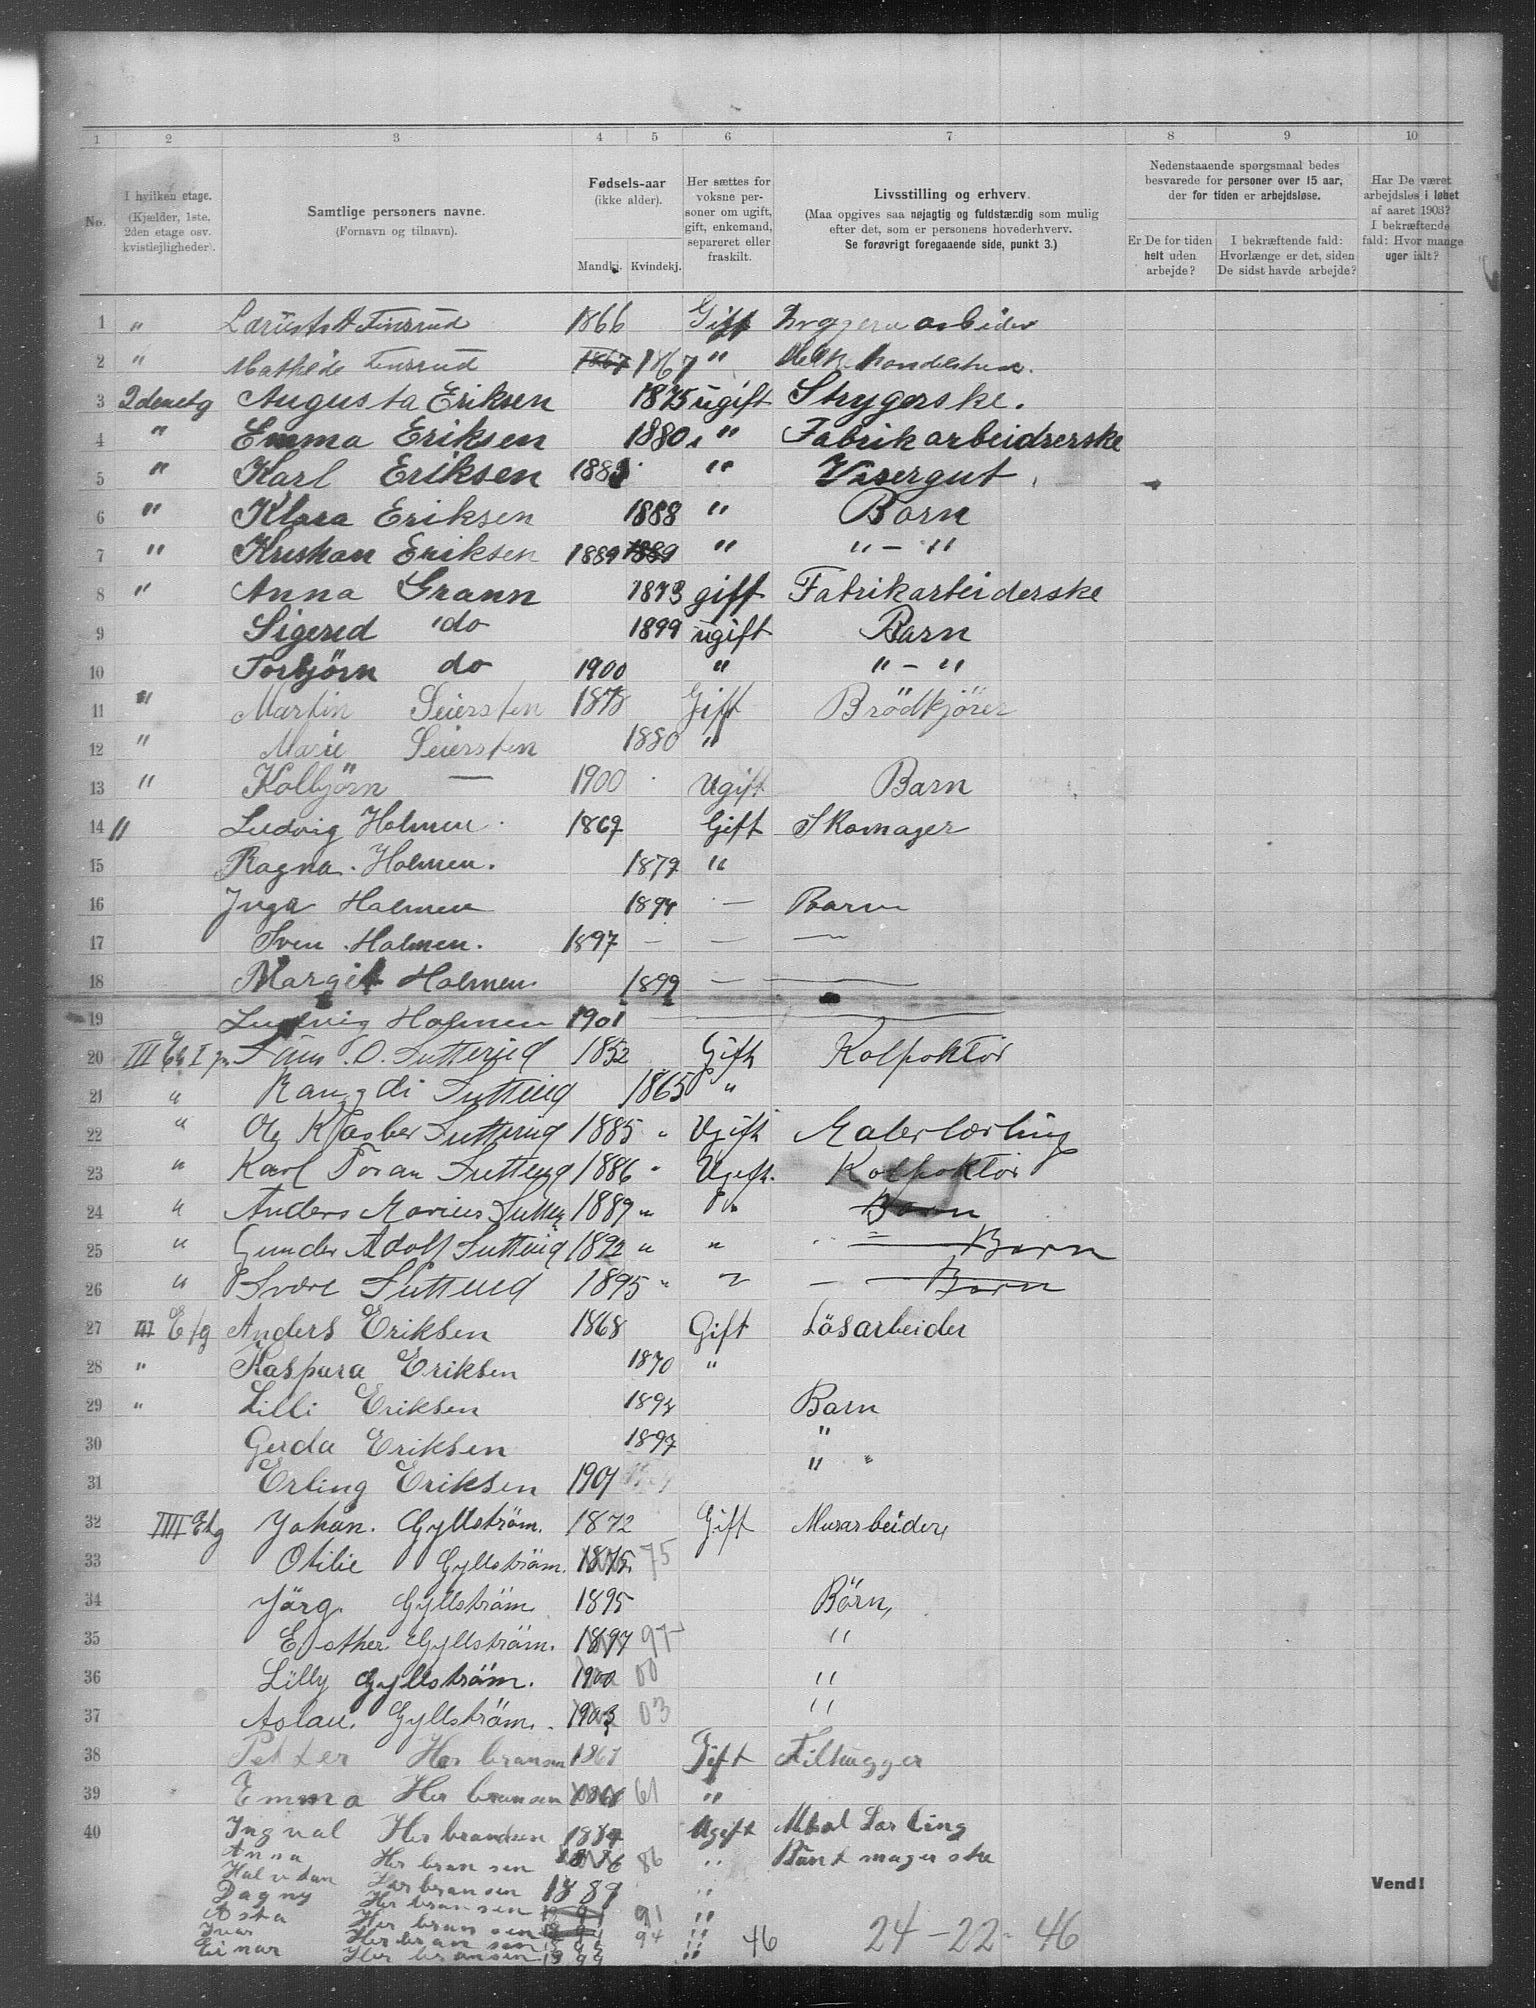 1 2 3 4 5 6 7 8 9 10
No.
I hvilken etage.
(Kjælder, 1ste,
2den etage osv.
kvistlejligheder).
Samtlige personers navne.
(Fornavn og tilnavn).
Fødsels-aar
(ikke alder).
Mandkj. Kvindekj.
Her sættes for
voksne per-
soner om ugift,
gift, enkemand,
separeret eller
fraskilt.
Livsstilling og erhverv.
(Maa opgives saa nøjagtig og fuldstændig som mulig
efter det, som er personens hovederhverv.
Se forøvrigt foregaaende side, punkt 3.)
Nedenstaaende spørgsmaal bedes
besvarede for personer over 15 aar,
der for tiden er arbejdsløse.
Er De for tiden
helt uden
arbejde?
I bekræftende fald:
Hvorlænge er det, siden
De sidst havde arbejde?
Har De været
arbejdsløs i løbet
af aaret 1903?
I bekræftende
fald: Hvor mange
uger ialt?
1 " Finsrud 1866 Gift
2 " Mathilde Finsrud 1867 1867 "
3 2denetg Augusta Eriksen 1875 ugift Strygerske.
4 " Emma Eriksen 1880 " Fabrikarbeidserske
5 " Karl Eriksen " Visergut
6 " Klara Eriksen 1888 " Barn
7 " Kristian Eriksen 1889 1889 " " - "
8 " Anna Grann 1873 gift Fabrikarbeiderske
9 Sigerid do 1899 ugift Barn
10 Torbjörn do 1900 " " - "
11 " Martin Seiersten 1878 Gift Brödkjörer
12 " Marie Seiersten 1880 "
13 " Kolbjörn — 1900 Ugift Barn
14 " Ludvig Holmen 1869 Gift Skomager
15 Ragna Holmen. 1872 "
16 Inga Holmen 1894 — Barn
17 Sven Holmen. 1897 — — —
18 Margit Holmen 1899 — —
19 Ludvig Holmen 1901 —
20 III O. Sutterud 1852 Gift Kolpoktör
21 " Rangdi Sutterud 1865 "
22 " Ole Sutterud 1885 " Ugift Malerlærling
23 " Karl Sutterud 1886 " Ugift. Kolpoktör
24 " Anders Marius 1889 " " Barn
25 " Gunder Adolf Sutterud 1892 " " Barn
26 " Sutterud 1895 " " — Barn
27 III Etg Anders Eriksen 1868 Gift Lösarbeider
28 " Kaspara Eriksen 1870 "
29 " Lilli Eriksen 1894 Barn
30 Gerda Eriksen 1897 "
31 Erling Eriksen 1901 " "
32 IIII Etg Johan. Gyllström. 1872 Gift Murarbeider
33 Otilie Gyllström. 1875 75
34 Järg. Gyllström 1895 Börn,
35 Esther Gyllström. 1897 97 "
36 Lilly Gyllström. 1900 00 "
37 Gyllström. 1903 03 "
38 Petter Herbransen 1861 Gift Filhugger
39 Emma Herbransen 1861 61 "
40 Ingval Herbrandsen 1884 Ugift
Anna Herbransen 1886 86 "
Halvdan Herbransen 1889 "
Dagny Herbransen 91 "
Asta Herbransen 94 "
Ivar Herbransen "
Einar Herbransen 1899 " 46 24 - 22 - 46
Vend!